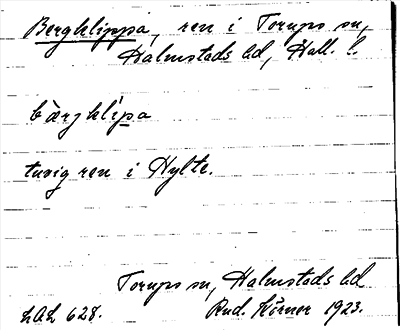 Bergklippa, ren i Torups sn,
Halmstads hd, Hall. l.
bàrjklípa
tuvig ren i Hylte.
Torups sn, Halmstads hd
LAL 628. Rud. Körner 1923.